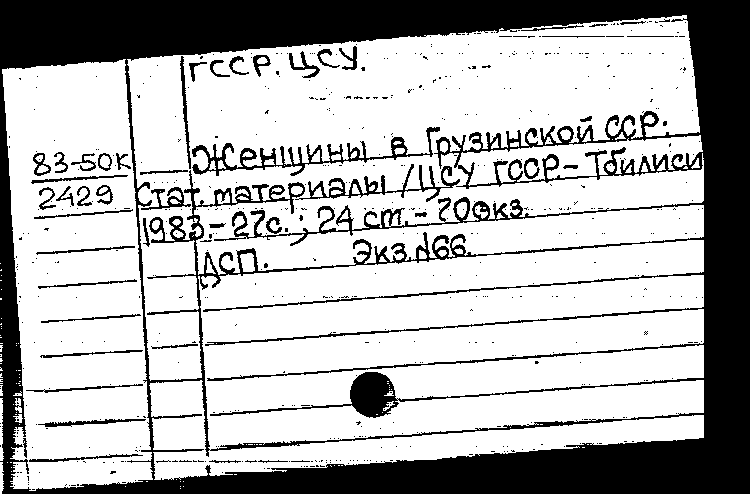 ГССР. ЦСУ.
83-50К Женщины в Грузинской ССР:
2429 Стат. материалы /ЦСУ ГССР - Тбилиси
1983. - 27с.; 24 ст. - 70экз.
ДСП. Экз.№66.